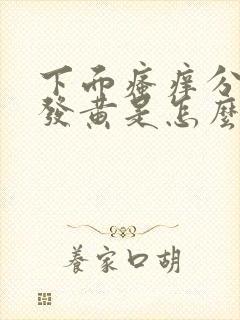 下面瘙癢分
發黃是怎麼
養家口胡